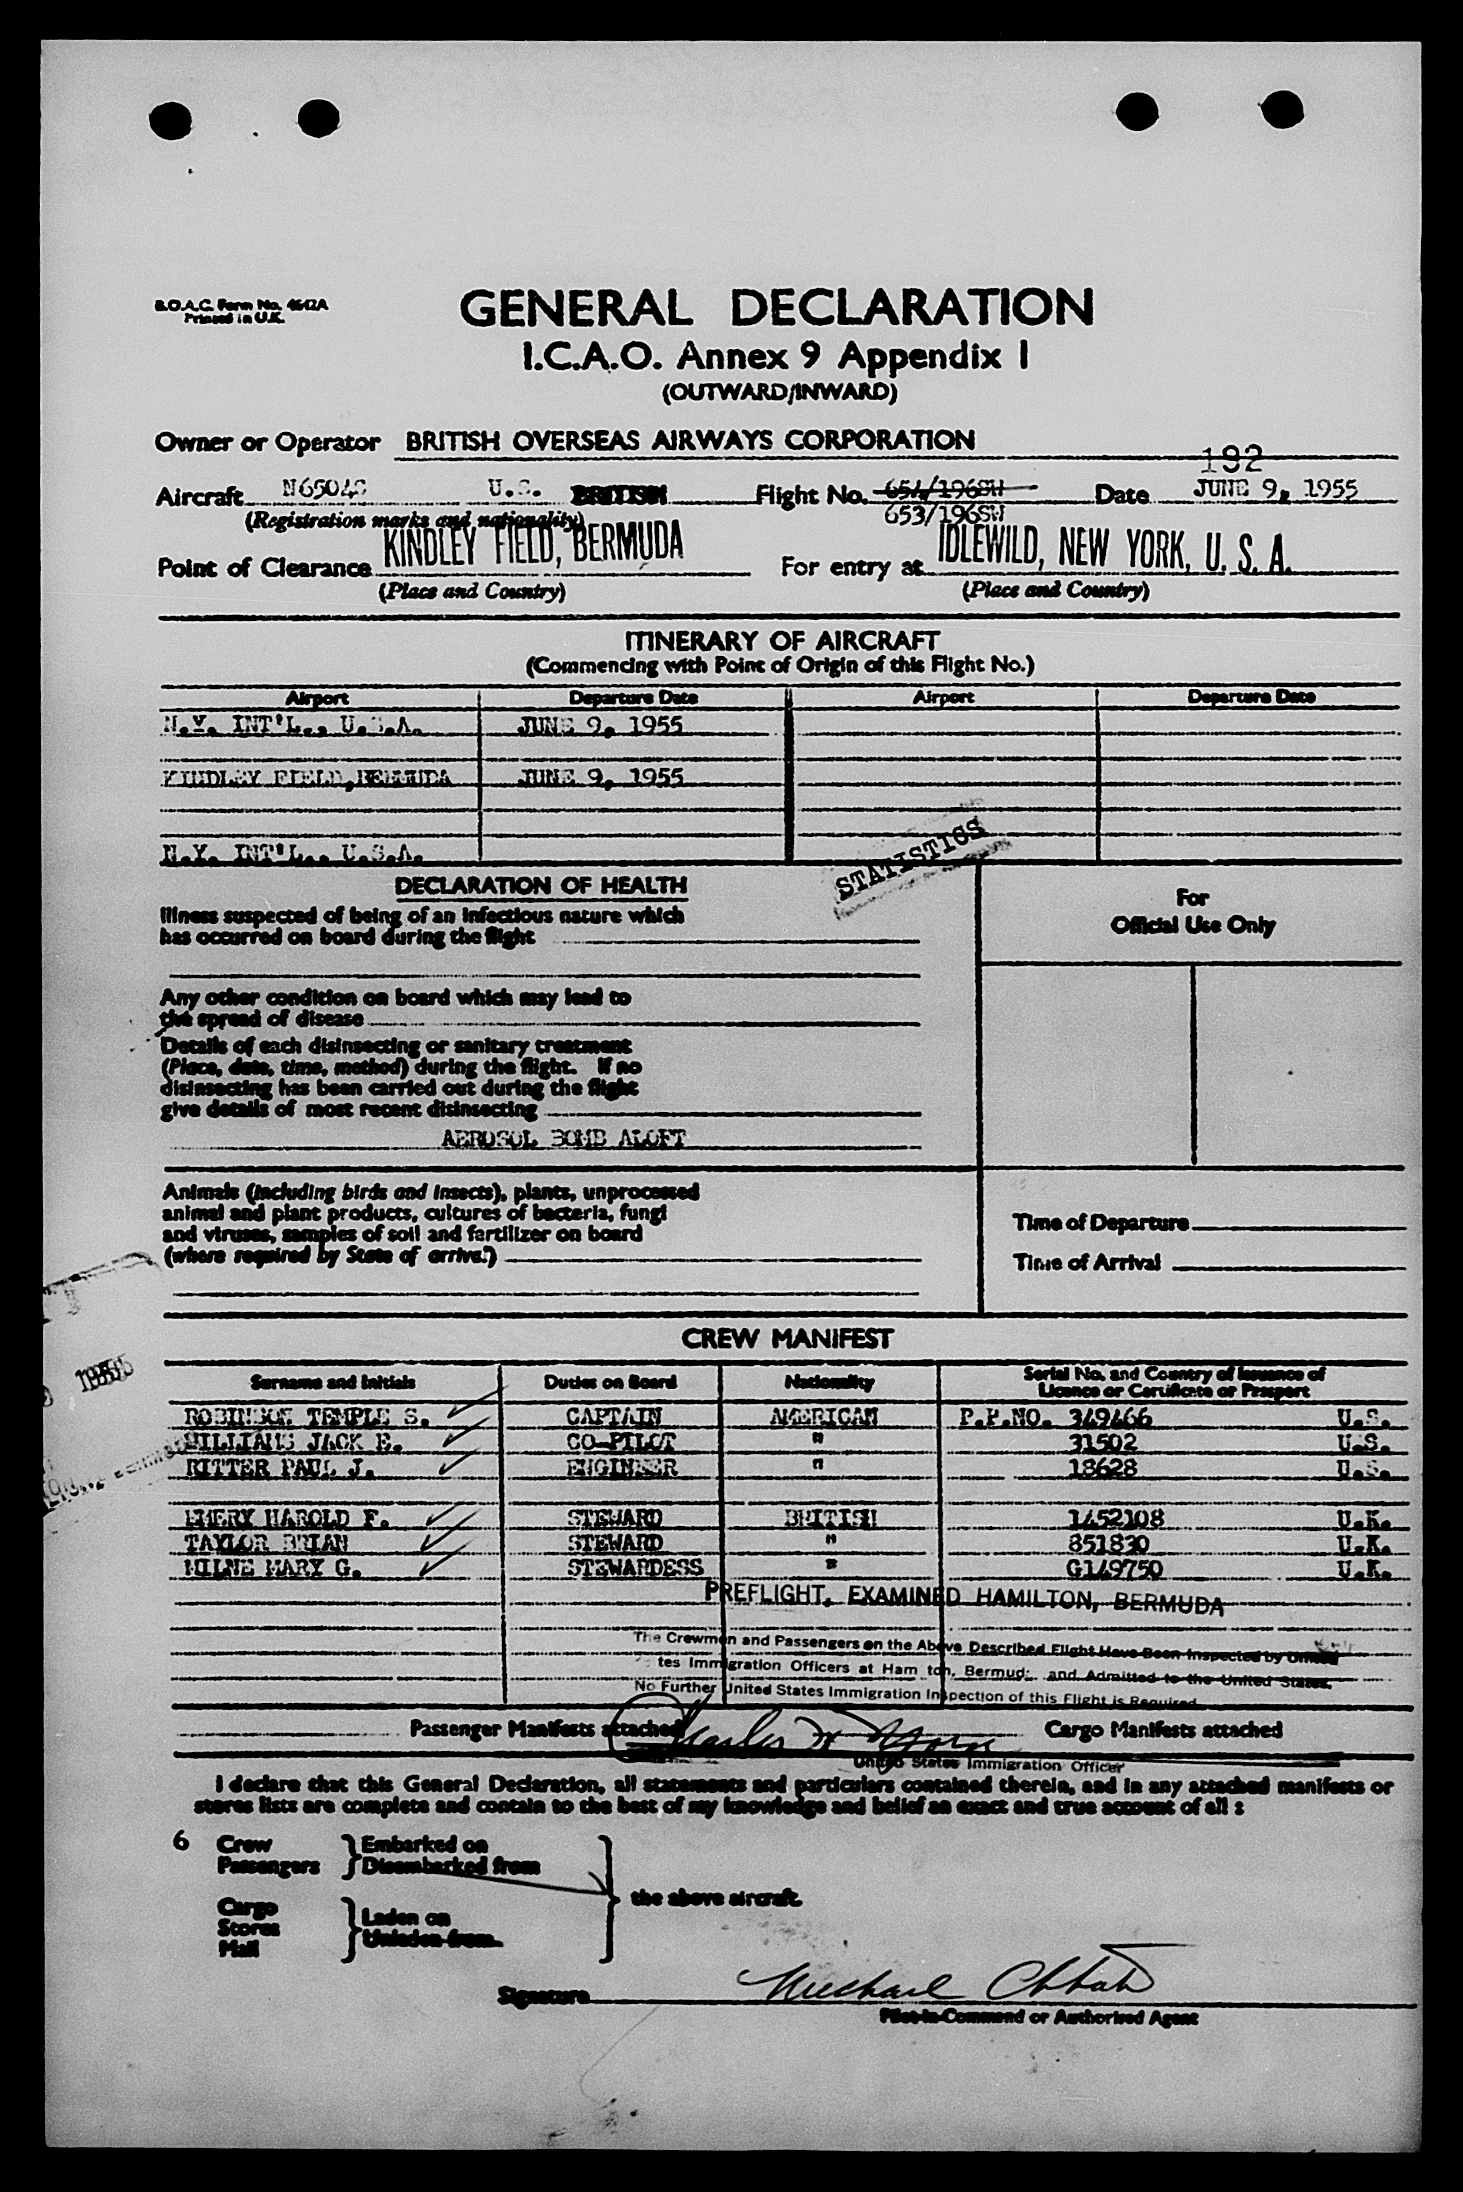 B.O.A.C. Form No. 4642A
Printed in U.K.
GENERAL DECLARATION
I.C.A.O. Annex 9 Appendix I
(OUTWARD/INWARD)
Owner or Operator BRITISH OVERSEAS AIRWAYS CORPORATION
192
Aircraft N6504C U.S. BRITISH Flight No. 654/196SW Date JUNE 9, 1955
(Registration marks and nationality) 653/196SW
Point of Clearance KINDLEY FIELD, BERMUDA For entry at IDLEWILD, NEW YORK, U. S. A.
(Place and Country) (Place and Country)
ITINERARY OF AIRCRAFT
(Commencing with Point of Origin of this Flight No.)
Airport Departure Date Airport Departure Date
N.Y. INT'L., U.S.A. JUNE 9, 1955
KINDLEY FIELD, BERMUDA JUNE 9, 1955
N.Y. INT'L., U.S.A.
STATISTICS
DECLARATION OF HEALTH
Illness suspected of being of an infectious nature which
has occurred on board during the flight
For
Official Use Only
Any other condition on board which may lead to
the spread of disease
Details of each disinsecting or sanitary treatment
(Place, date, time, method) during the flight. If no
disinsecting has been carried out during the flight
give details of most recent disinsecting
AEROSOL BOMB ALOFT
Animals (including birds and insects), plants, unprocessed
animal and plant products, cultures of bacteria, fungi
and viruses, samples of soil and fertilizer on board
(where required by State of arrival)
Time of Departure
Time of Arrival
CREW MANIFEST
Surname and Initials Duties on Board Nationality Serial No. and Country of Issuance of
Licence or Certificate or Passport
ROBINSON TEMPLE S. CAPTAIN AMERICAN P.P.NO. 349466 U.S.
WILLIAMS JACK E. CO-PILOT " 31502 U.S.
RITTER PAUL J. ENGINEER " 18628 U.S.
EMERY HAROLD F. STEWARD BRITISH 1452108 U.K.
TAYLOR BRIAN STEWARD " 851830 U.K.
MILNE MARY G. STEWARDESS " G149750 U.K.
PREFLIGHT, EXAMINED HAMILTON, BERMUDA
The Crewmen and Passengers on the Above Described Flight Have Been Inspected by United
tes Immigration Officers at Ham ton, Bermuda and Admitted to the United States.
No Further United States Immigration Inspection of this Flight is Required
Passenger Manifests attached Cargo Manifests attached
United States Immigration Officer
I declare that this General Declaration, all statements and particulars contained therein, and in any attached manifests or
stores lists are complete and contain to the best of my knowledge and belief an exact and true account of all :
6 Crew Embarked on
Passengers Disembarked from
the above aircraft.
Cargo
Stores Laden on
Mail Unladen from
Signature Michael
Pilot-in-Command or Authorised Agent